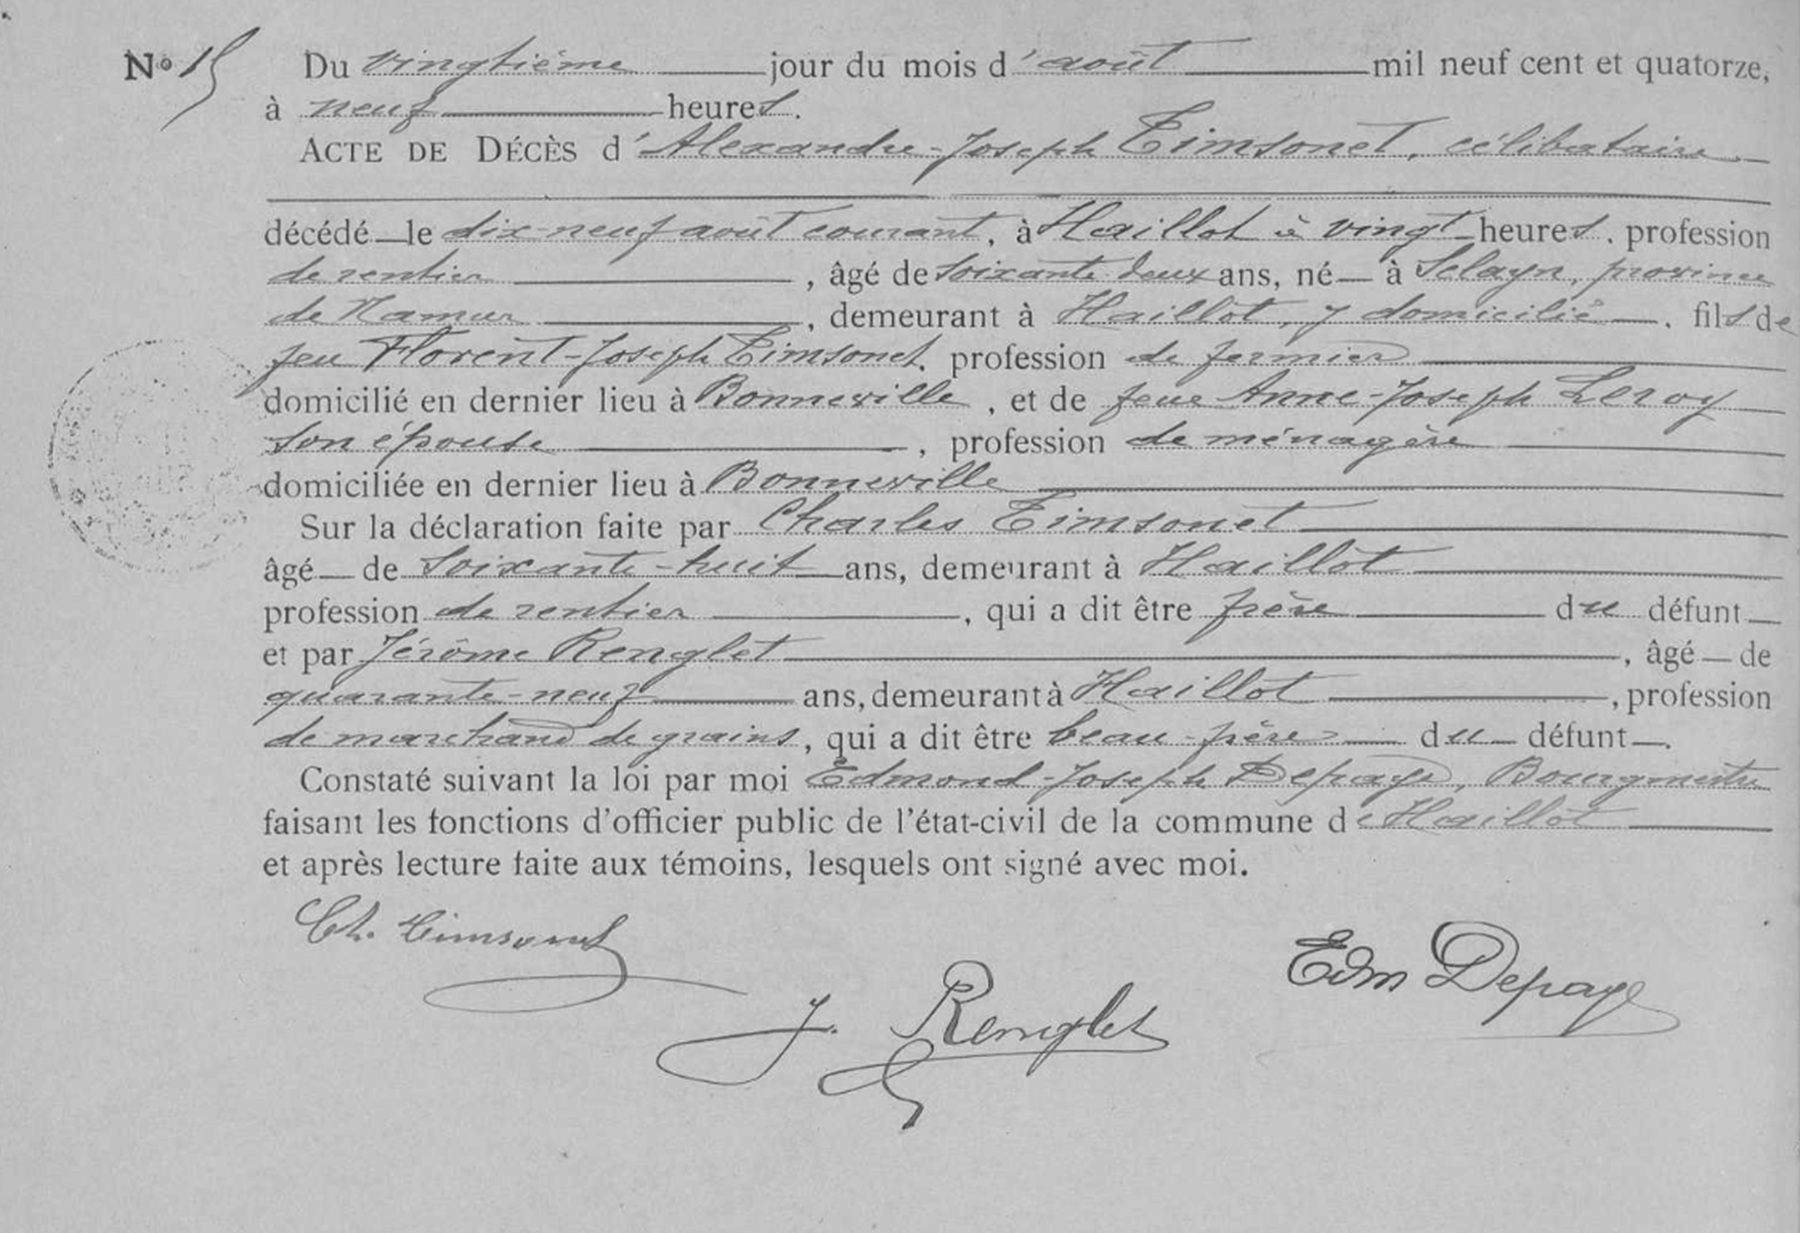 N° 15 Du vingtième jour du mois d'août mil neuf cent et quatorze,
à neuf heures.
ACTE DE DÉCÈS d'Alexandre-Joseph Timsonet, célibataire
décédé le dix-neuf août courant, à Haillot à vingt heures. profession
de rentier, âgé de soixante deux ans, né à Sclayn, province
de Namur, demeurant à Haillot, y domicilié. fils de
feu Florent-Joseph Timsonet, profession de fermier
domicilié en dernier lieu à Bonneville, et de feue Anne-Joseph Leroy
son épouse, profession de ménagère
domiciliée en dernier lieu à Bonneville
Sur la déclaration faite par Charles Timsonet
âgé de soixante-huit ans, demeurant à Haillot
profession de rentier, qui a dit être frère du défunt
et par Jérôme Renglet, âgé de
quarante-neuf ans, demeurant à Haillot, profession
de marchand de grains, qui a dit être beau-frère du défunt.
Constaté suivant la loi par moi Edmond-Joseph Depaye, Bourgmestre
faisant les fonctions d'officier public de l'état-civil de la commune de Haillot
et après lecture faite aux témoins, lesquels ont signé avec moi.
Ch. Timsonet
Edm Depaye
J. Renglet